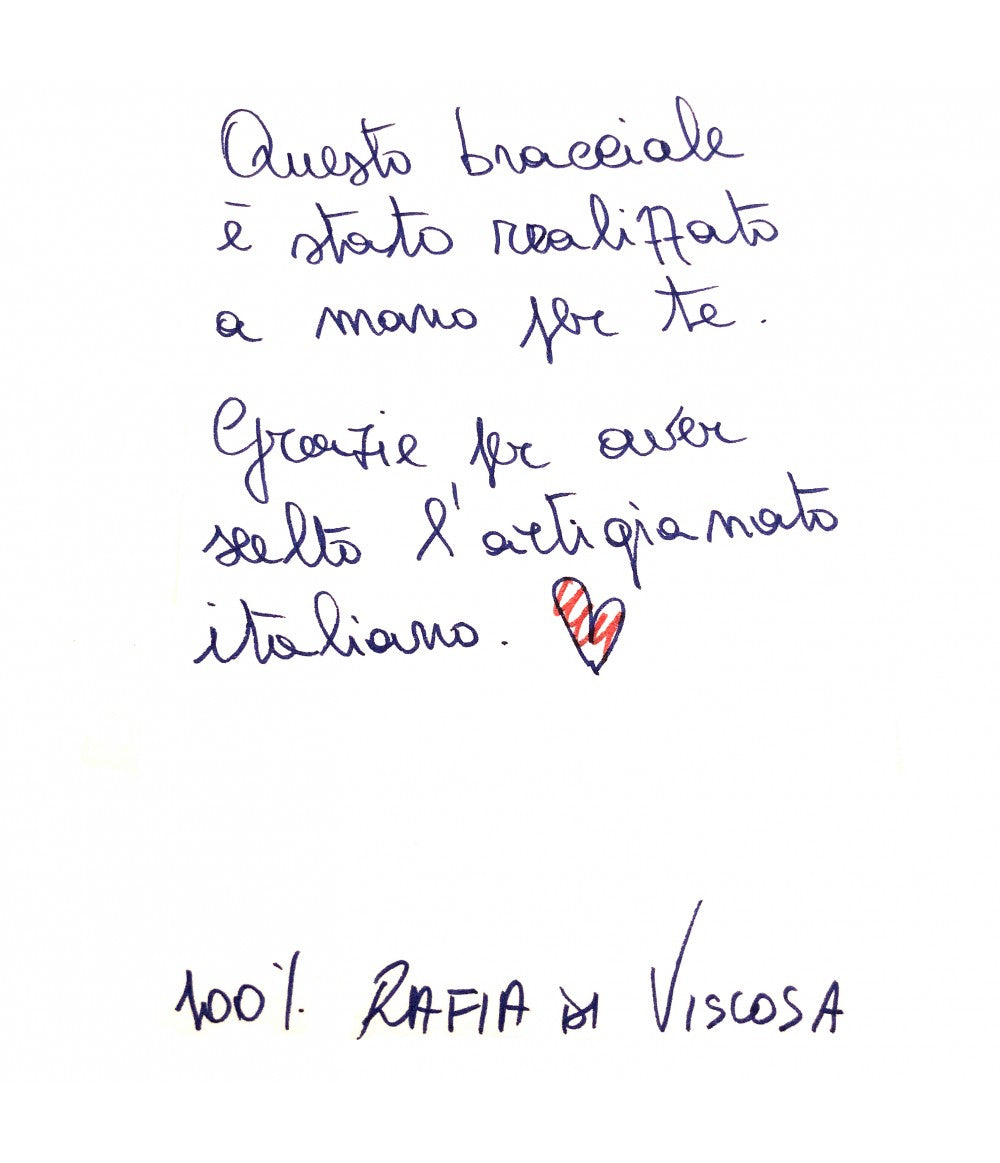 Questo bracciale
è stato realizzato
a mano per te.
Grazie per aver
scelto l'artigianato
italiano.
100% RAFIA DI VISCOSA